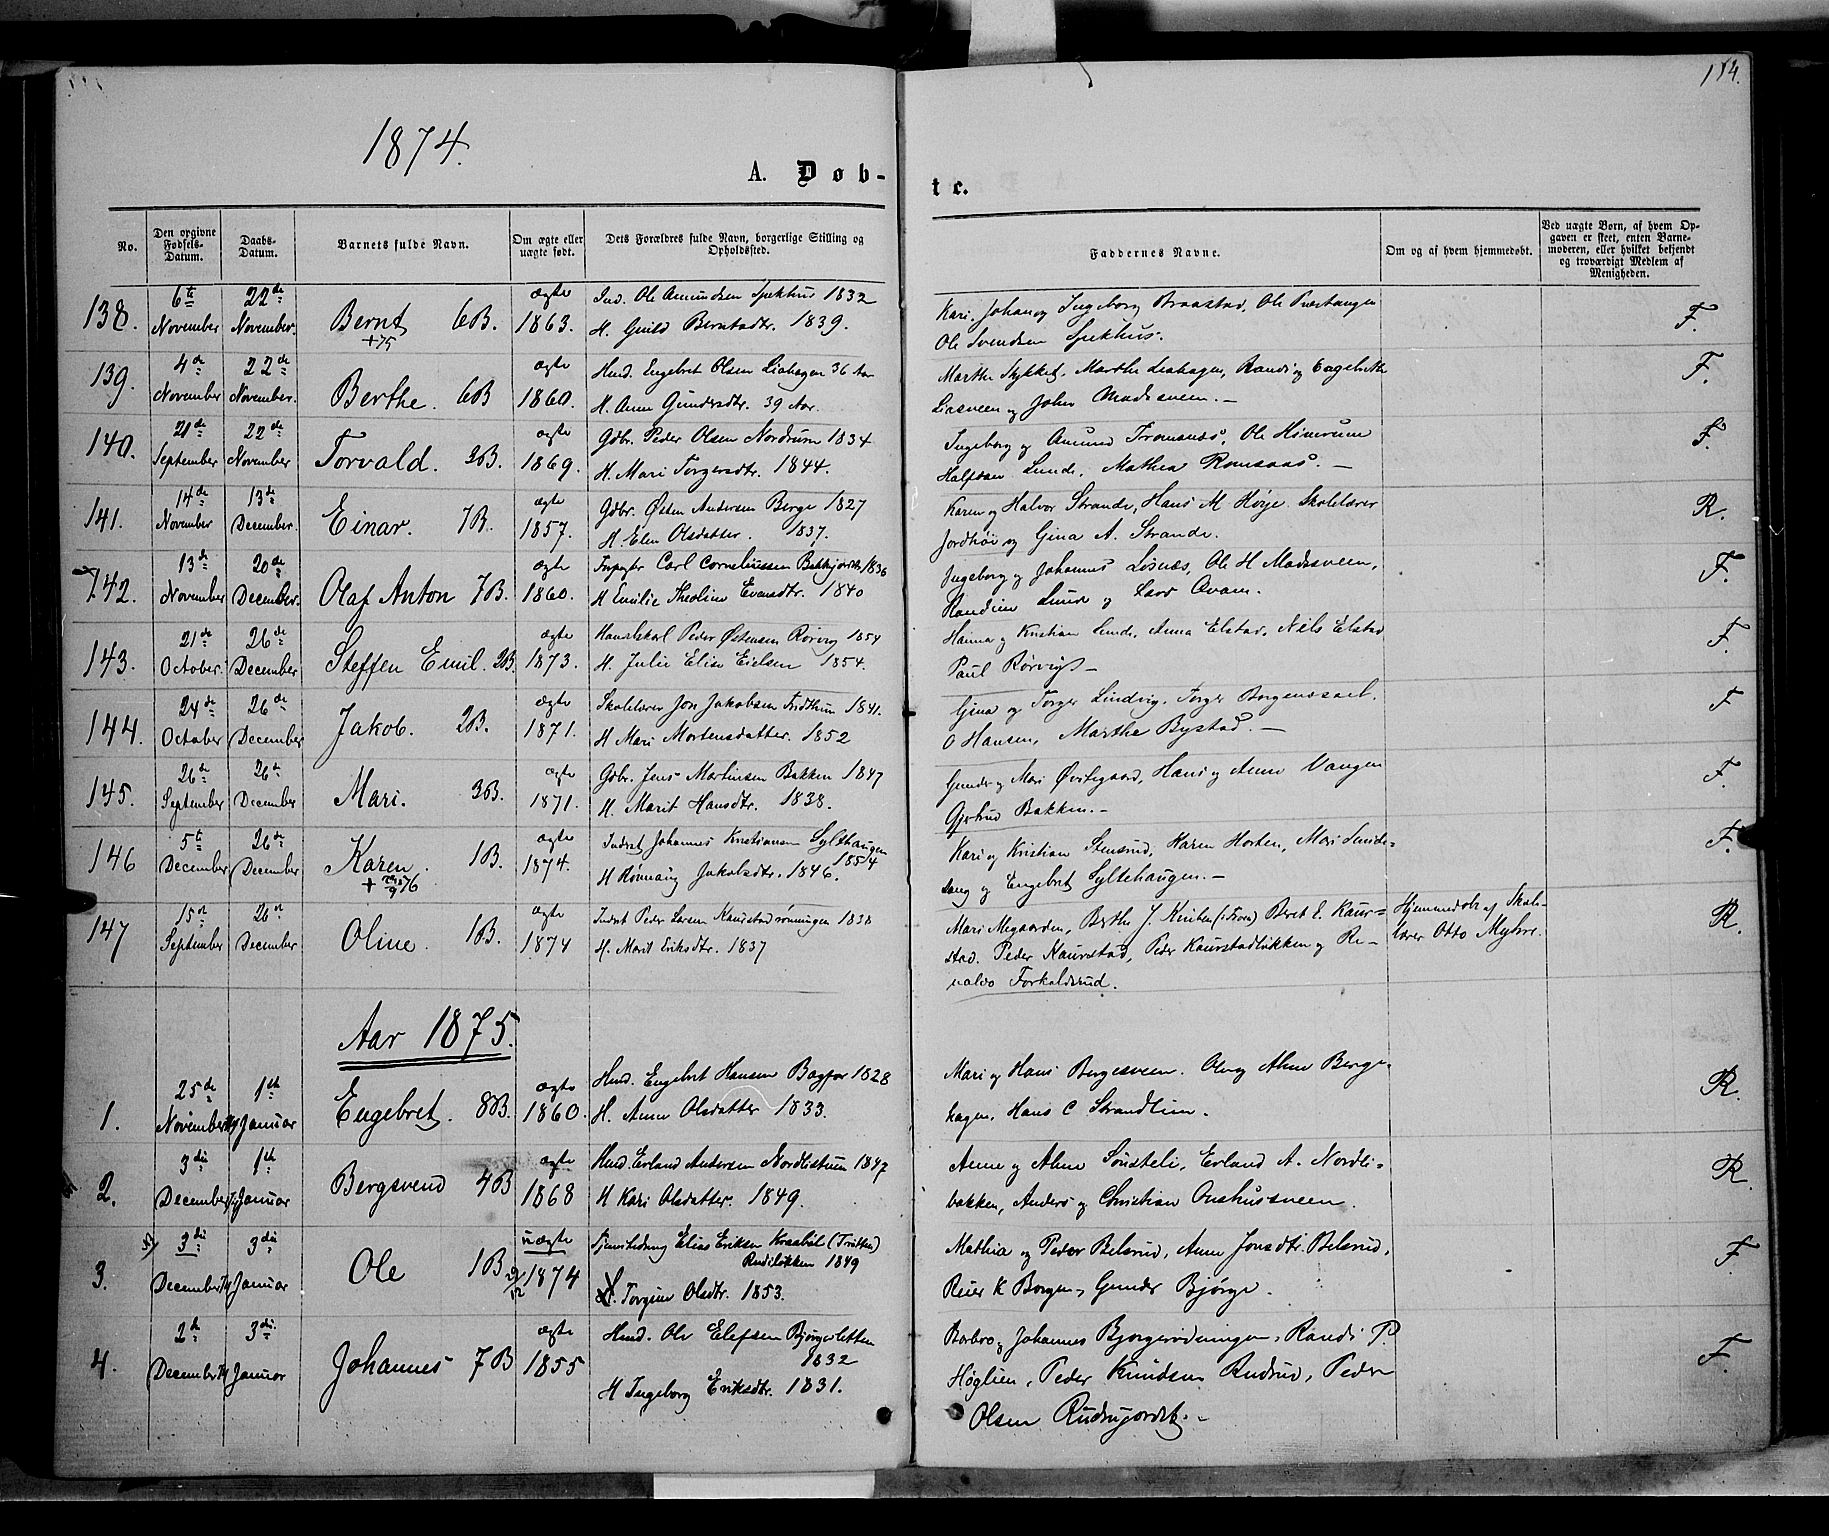 114.
1874.
A. Døb-
te.
No.
Den opgivne Fødsels-Datum.
Daabs-Datum.
Barnets fulde Navn.
Om ægte eller uægte født.
Dets Forældres fulde Navn, borgerlige Stilling og Opholdsted.
Faddernes Navne.
Om og af hvem hjemmedøbt.
Ved uægte Børn, af hvem Opgaven er skeet, enten Barnemoderen, eller hvilket bekjendt og troværdigt Medlem af Menigheden.
138. 6te November 22de November. Bernt 6B. +75 ægte 1863.
Ind. Ole Amundsen Spekhus 1832
H. Guild Berntsdtr. 1839.
Kari, Johan og Ingeborg Braastad, Ole Prestangen
Ole Svendsen Spekhus.
F.
139. 4de November 22de November. Berthe. 6B ægte 1860.
Hmd. Engebret Olsen Liahagen 36 Aar
H. Anne Gundersdtr. 39 Aar.
Marthe Stykket, Marthe Liahagen, Randi og Engebrethe
Liesveen og John Madssveen.
F.
140. 21de September 22de November Torvald. 2B. ægte 1869.
Gdbr. Peder Olsen Nordrum 1834
H. Mari Torgersdtr. 1844.
Ingeborg og Amund Tromsnes, Ole Hinerum
Halfdan Lunde, Mathea Romsaas.
F.
141. 14de November 13de December. Einar. 7B. ægte 1857.
Gdbr. Østen Andersen Berge 1827
H. Elen Olsdatter. 1837.
Karen og Halvor Strande, Hans M Høje Skolelærer
Jordhøi og Gina A. Strande.
R.
142. 13de November 20de December. Olaf Anton 7B. ægte 1860.
Carl Corneliussen 1836
H Emilie Theoline Evensdtr. 1840
Ingeborg og Johannes Losnæs, Ole H Madssveen,
Handine Lunde og Lars Qvam.
F.
143. 21de October. 26de December Steffen Emil. 2B. ægte 1873.
Handelskarl Peder Østensen Rørvig 1854
H. Julie Elise Eielsen 1854.
Hanna og Kristian Lunde, Anna Elstad, Nils Elstad
Paul Rørvig
F.
144. 24de October 26de December Jakob. 2B. ægte 1871.
Skolelærer Jon Jakobsen Fridthun 1841.
H Mari Mortensdatter. 1852
Gina og Torger Lindvig, Torger
O Hansen, Marthe Bystad.
F
145. 26de September 26de December Mari. 3B. ægte 1871.
Gdbr. Jens Martinsen Bakken 1847
H. Marit Hansdtr. 1838.
Gunder og Mari Øvstegaard, Hans og Anne Vangen
Gjertrud Bakken.
F.
146 5te December 26de December Karen. 1B. + 76 ægte 1874.
Inderst Johannes Kristiansen Sylthaugen 1854
H Rønnaug Jakobsdtr. 1846.
Kari og Kristian Stensrud, Karen Horten, Mari Lunde=
haug og Engebret Syltehaugen.
F.
147 15de September 26de December Oline. 1B. ægte 1874
Inderst Peder Larsen Kaurstadrønningen 1838
H. Marit Eriksdtr. 1837
Mari Megaarden, Berthe J. Beret E. Kaur=
stad. Peder Kaurstad, Peder Kaurstadløkken og Re=
valds Forkalsrud.
Hjemmedøbt af Skole-
lærer Otto Myhre.
R.
Aar 1875.
1. 25de November 74 1ste Januar Engebret. 8B. ægte 1860.
Hmd. Engebret Hansen Bagfor 1828
H. Anne Olsdatter 1833.
Mari og Hans Bergesveen. Ole og Anne Berge-
hagen, Hans C Strandlien.
R.
2. 3die December 74 1ste Januar Bergsvend 4B ægte 1868
Hmd. Erland Andersen Nordlistuen 1847
H Kari Olsdatter. 1849.
Anne og Ahne Sønsteli, Erland A. Nordli=
bakken, Anders og Christian Onshussveen.
R.
3. 3die December 74 3die Januar Ole 1B uægte 1874
Elias Eriksen Kraabøl (Tretten)
Rudiløkken 1849
Torgine Olsdtr. 1853.
Mathia og Peder Belsrud, Anne Jonsdtr. Belsrud,
Reier K Borgen, Gunder Bjørge.
F.
4. 2de December 74 3die Januar Johannes 7B ægte 1855
Hmd. Ole Elefsen Bjørgesletten
1832
H Ingeborg Eriksdtr. 1831.
Barbro og Johannes Bjørgerødningen, Randi P.
Høglien, Peder Knudsen Rudrud, Peder
Olsen Rudsjordet.
F.